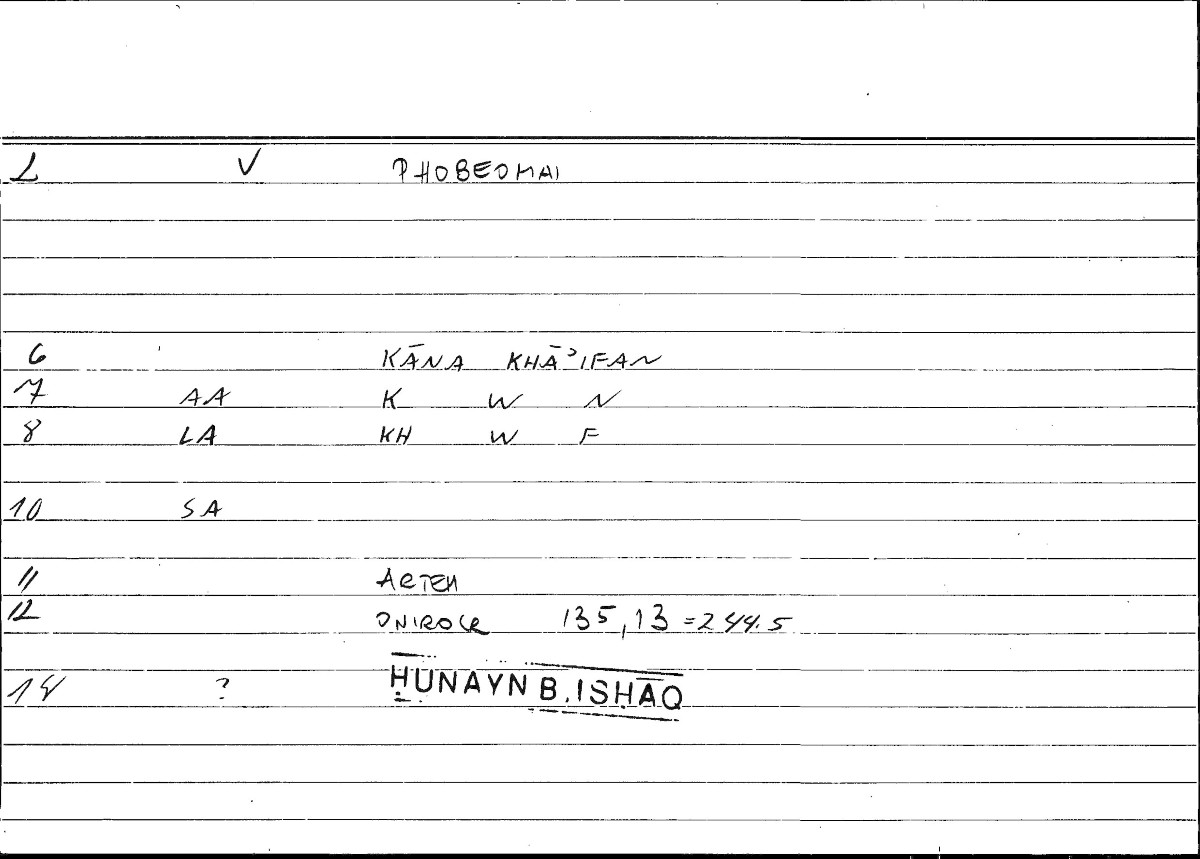 1 V PHOBEOMAI
6 KĀNA KHĀʾIFAN
7 AA K W N
8 LA KH W F
10 SA
11 ARTEM
12 ONIROCR 135,13 = 244.5
14 ? ḤUNAYN B. ISḤĀQ